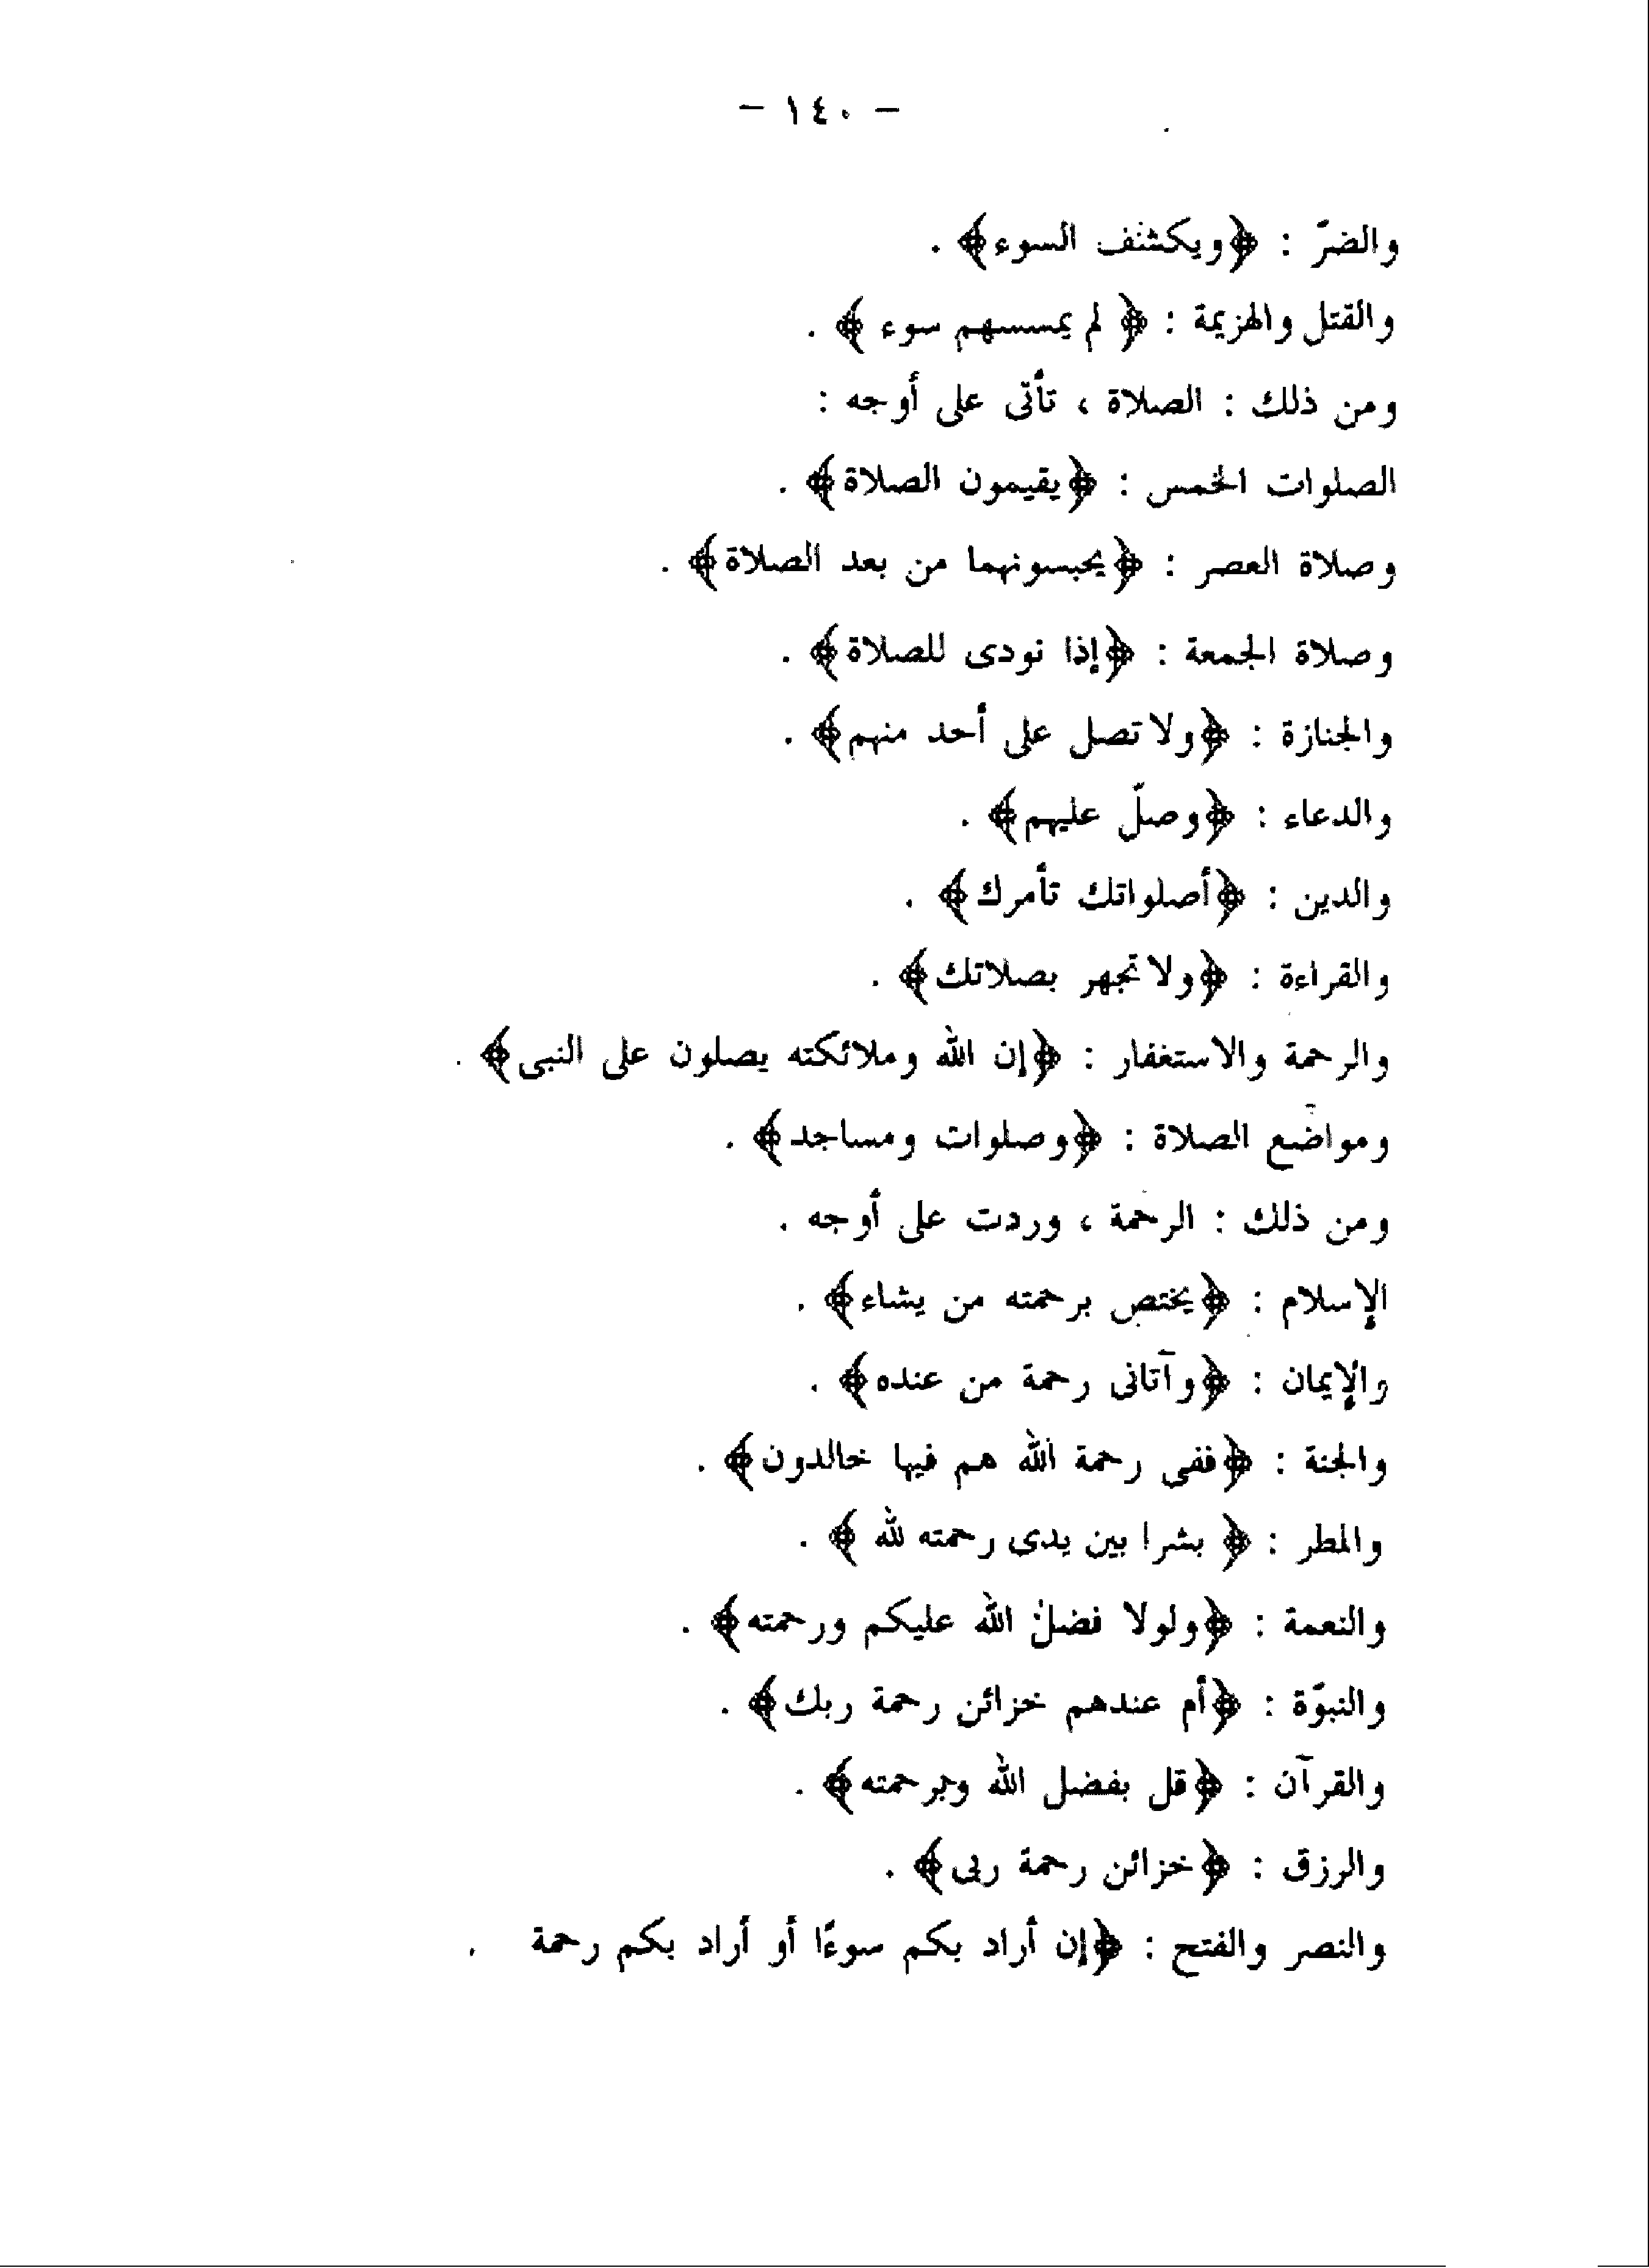 - ١٤٠ -
والضرّ : ﴿ويكشف السوء﴾ .
والقتل والهزيمة : ﴿ لم يمسسهم سوء ﴾ .
ومن ذلك : الصلاة ، تأتى على أوجه :
الصلوات الخمس : ﴿يقيمون الصلاة﴾ .
وصلاة العصر : ﴿يحبسونهما من بعد الصلاة﴾ .
وصلاة الجمعة : ﴿إذا نودى للصلاة﴾ .
والجنازة : ﴿ولا تصل على أحد منهم﴾ .
والدعاء : ﴿وصلّ عليهم﴾ .
والدين : ﴿أصلواتك تأمرك﴾ .
والقراءة : ﴿ولا تجهر بصلاتك﴾ .
والرحمة والاستغفار : ﴿إن الله وملائكته يصلون على النبى﴾ .
ومواضع الصلاة : ﴿وصلوات ومساجد﴾ .
ومن ذلك : الرحمة ، وردت على أوجه .
الإسلام : ﴿يختص برحمته من يشاء﴾ .
والإيمان : ﴿وآتانى رحمة من عنده﴾ .
والجنة : ﴿ففى رحمة الله هم فيها خالدون﴾ .
والمطر : ﴿ بشرا بين يدى رحمته لله ﴾ .
والنعمة : ﴿ولولا فضل الله عليكم ورحمته﴾ .
والنبوّة : ﴿أم عندهم خزائن رحمة ربك﴾ .
والقرآن : ﴿قل بفضل الله وبرحمته﴾ .
والرزق : ﴿خزائن رحمة ربى﴾ .
والنصر والفتح : ﴿إن أراد بكم سوءًا أو أراد بكم رحمة .